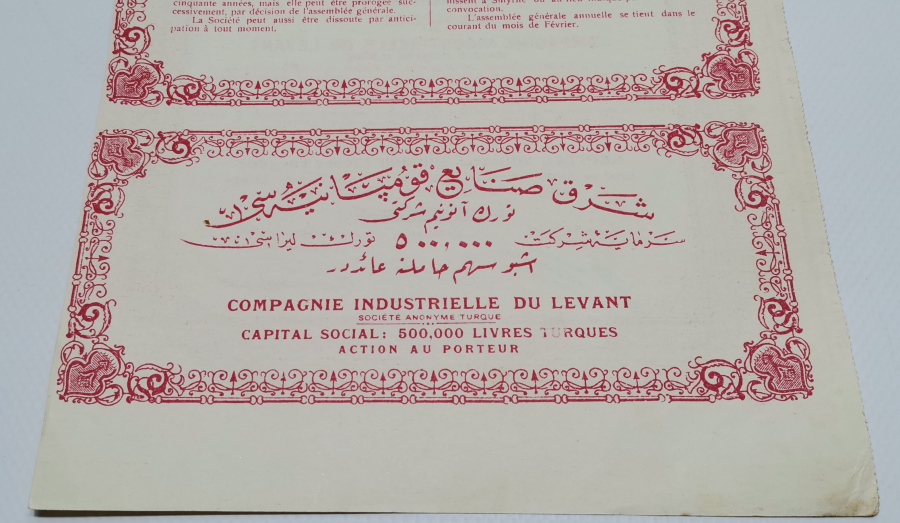 cinquante années, mais elle peut être prorogée suc-
cessivement, par décision de l'assemblée générale.
La Société peut aussi être dissoute par antici-
pation à tout moment.
convocation.
L'assemblée générale annuelle se tient dans le
courant du mois de Février.
شرق صنایع قومپانیه‌سی
تورك آنونیم شركتی
سرمایهٔ شركت ٥٠٠,٠٠٠ تورك لیراسی
اشبو سهم حاملنه عائددر
COMPAGNIE INDUSTRIELLE DU LEVANT
SOCIÉTÉ ANONYME TURQUE
CAPITAL SOCIAL: 500,000 LIVRES TURQUES
ACTION AU PORTEUR